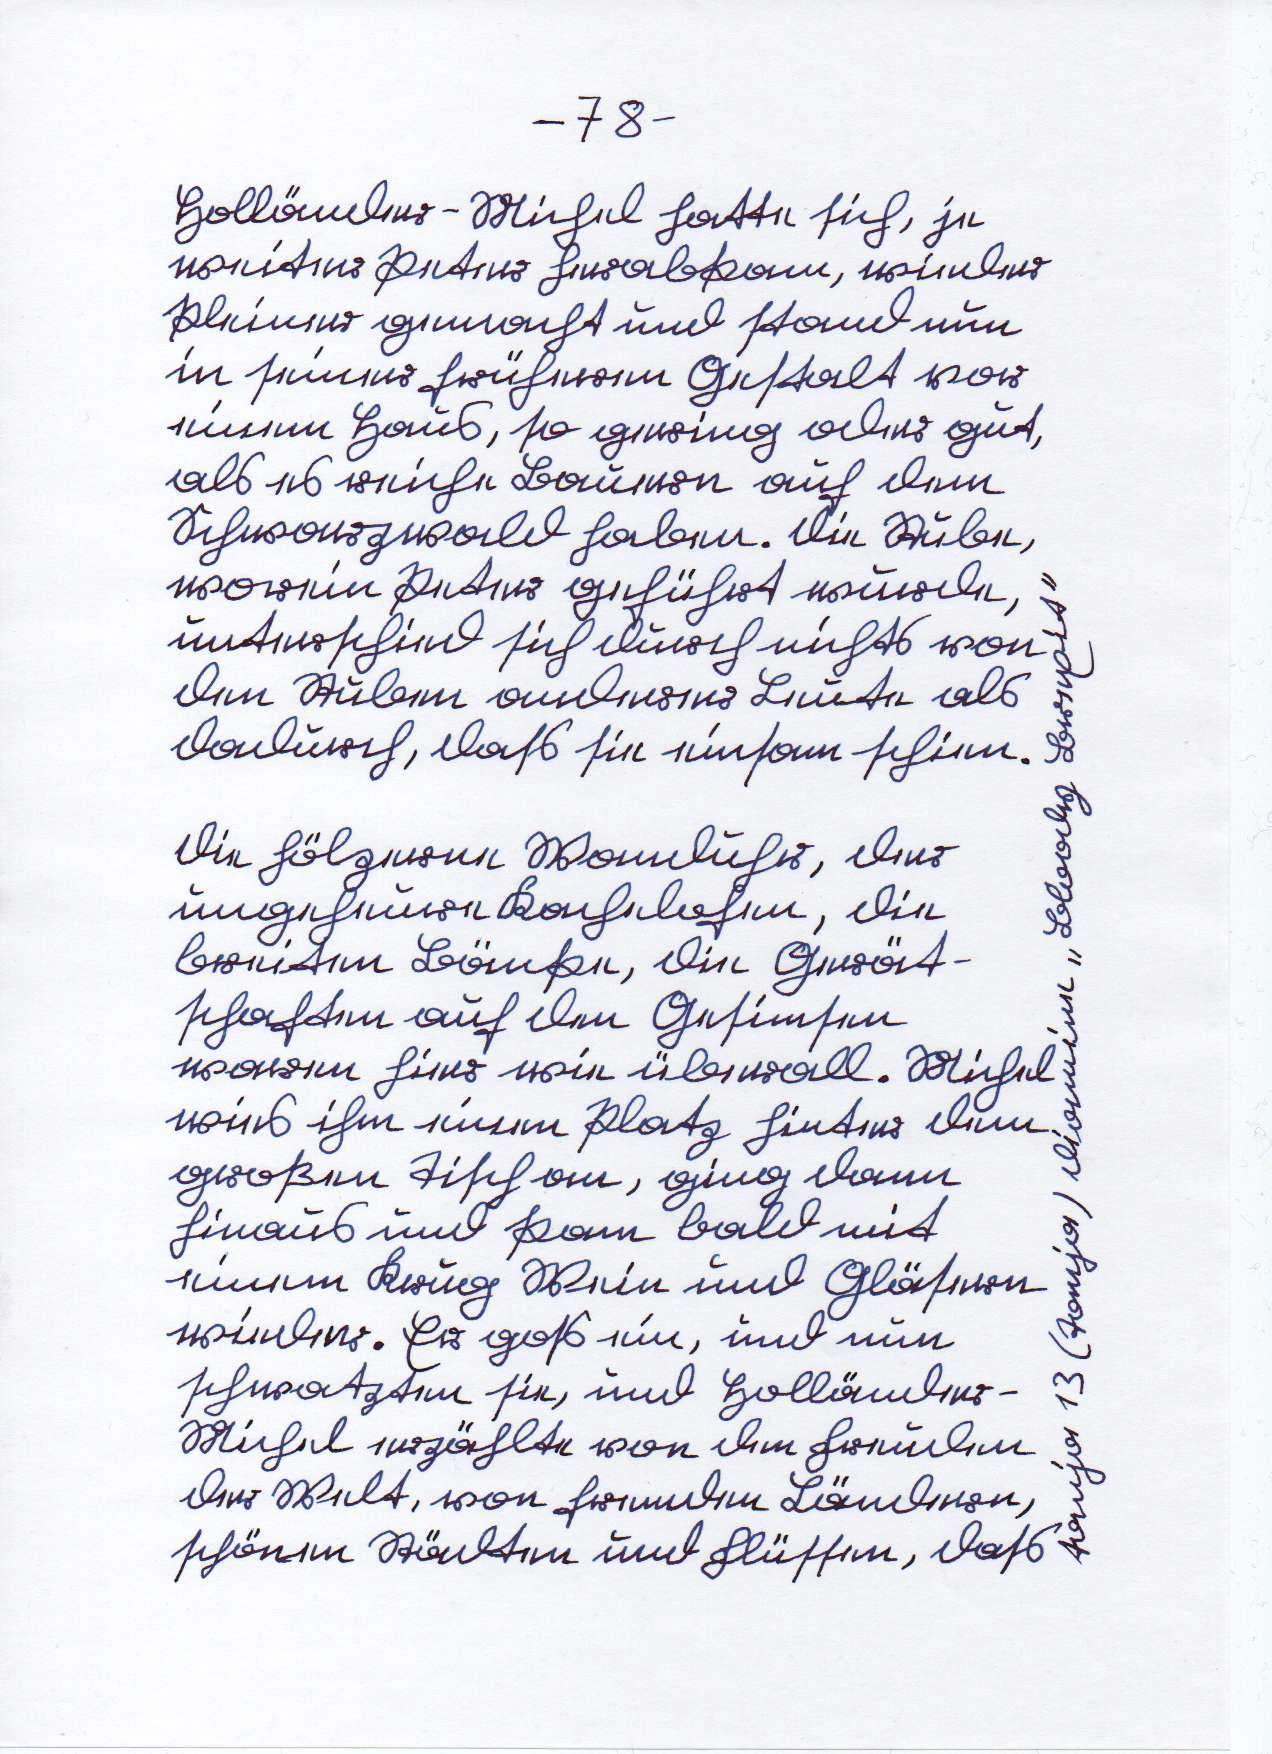 -78-
Holländer-Michel hatte sich, je
weiter Peter herabkam, wieder
kleiner gemacht und stand nun
in seiner früheren Gestalt vor
einem Haus, so gering oder gut,
als es reiche Bauern auf dem
Schwarzwald haben. Die Stube,
worein Peter geführt wurde,
unterschied sich durch nichts von
den Stuben anderer Leute als
dadurch, daß sie einsam schien.
Die hölzerne Wanduhr, der
ungeheure Kachelofen, die
breiten Bänke, die Gerät-
schaften auf den Gesimsen
waren hier wie überall. Michel
wies ihm einen Platz hinter dem
großen Tisch an, ging dann
hinaus und kam bald mit
einem Krug Wein und Gläsern
wieder. Er goß ein, und nun
schwatzten sie, und Holländer-
Michel erzählte von den Freuden
der Welt, von fremden Ländern,
schönen Städten und Flüssen, daß
Tanja 13 (Tanja)